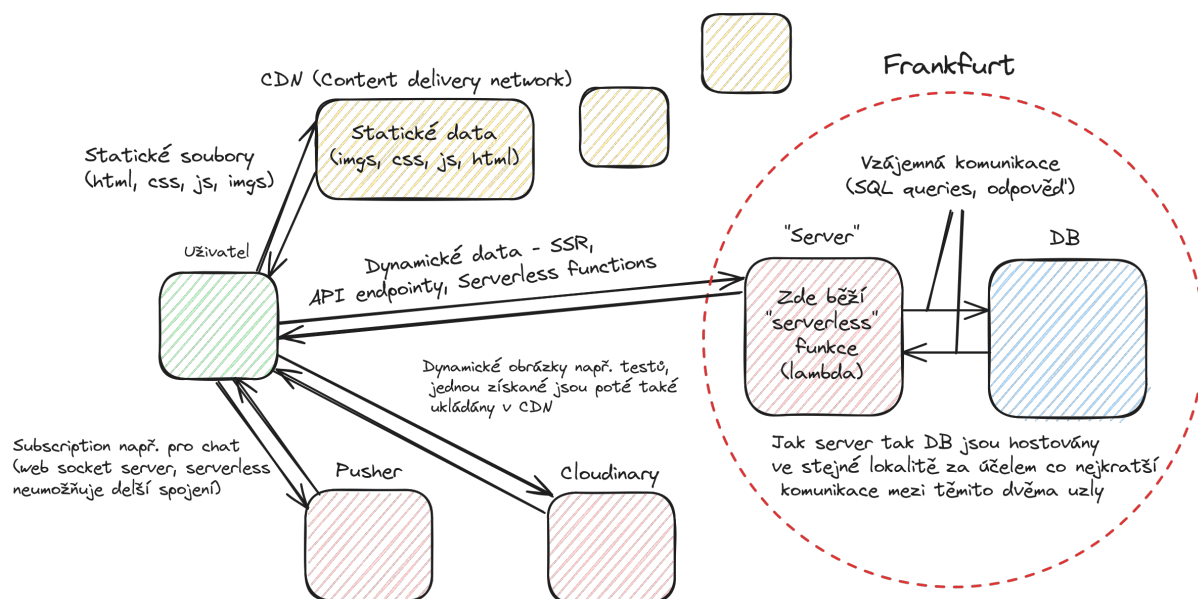 CDN (Content delivery network)
Statické data
(imgs, css, js, html)
Statické soubory
(html, css, js, imgs)
Uživatel
Dynamické data - SSR,
API endpointy, Serverless functions
Dynamické obrázky např. testů,
jednou získané jsou poté také
ukládány v CDN
Subscription např. pro chat
(web socket server, serverless
neumožňuje delší spojení)
Pusher
Cloudinary
Frankfurt
Vzájemná komunikace
(SQL queries, odpověď)
"Server"
DB
Zde běží
"serverless"
funkce
(lambda)
Jak server tak DB jsou hostovány
ve stejné lokalitě za účelem co nejkratší
komunikace mezi těmito dvěma uzly